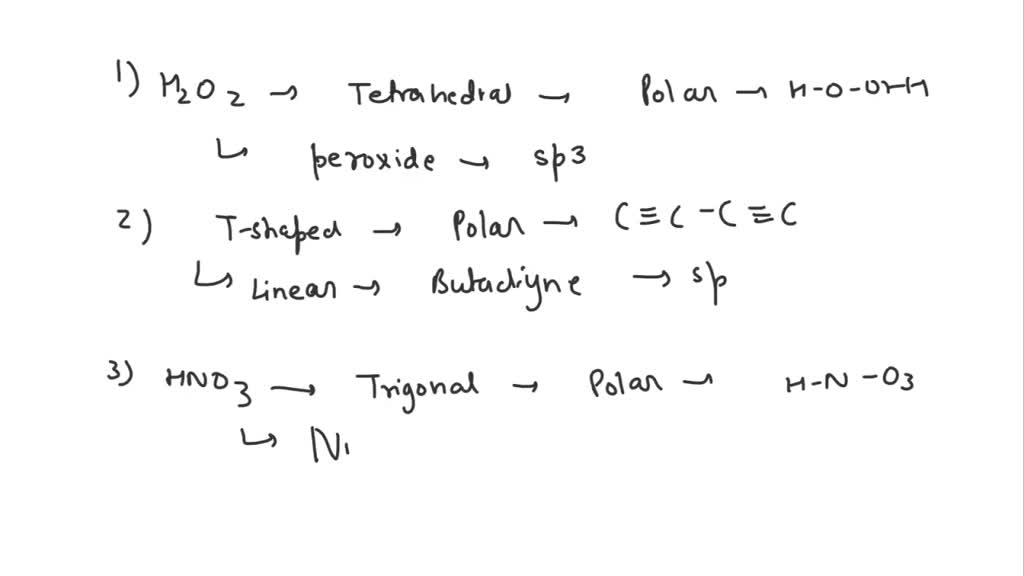 1) H2O2 → Tetrahedral → Polar → H-O-OH-H
↳ peroxide → sp3
2) T-shaped → Polar → C≡C-C≡C
↳ Linear → Butadiyne → sp
3) HNO3 → Trigonal → Polar → H-N-O3
↳ Ni